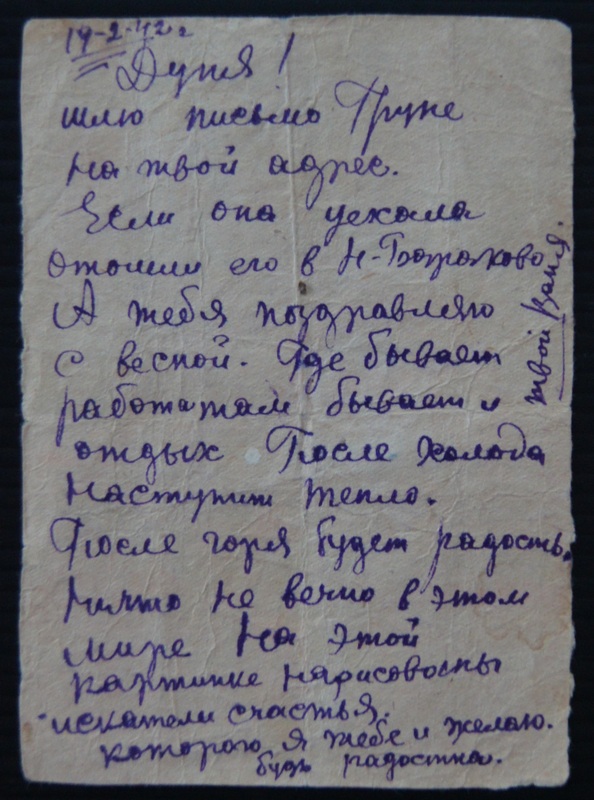 19-2-42г
Дуня!
шлю письмо Груне
на твой адрес.
Если она уехала
отошли его в Н-Батраково
А тебя поздравляю
с весной. Где бывает
работа там бывает и
отдых После холода
наступит тепло.
После горя будет радость.
Ничто не вечно в этом
мире На этой
картинке нарисованы
искатели счастья.
которого я тебе и желаю.
будь радостна.
твой Ваня.